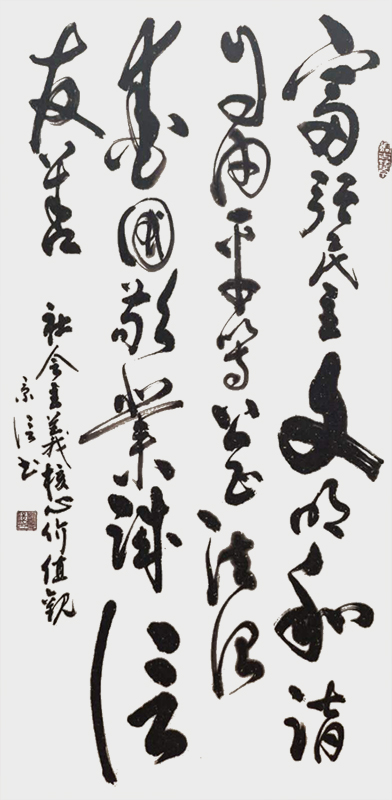 富强民主文明和谐
自由平等公正法治
爱国敬业诚信
友善
社会主义核心价值观
京信书